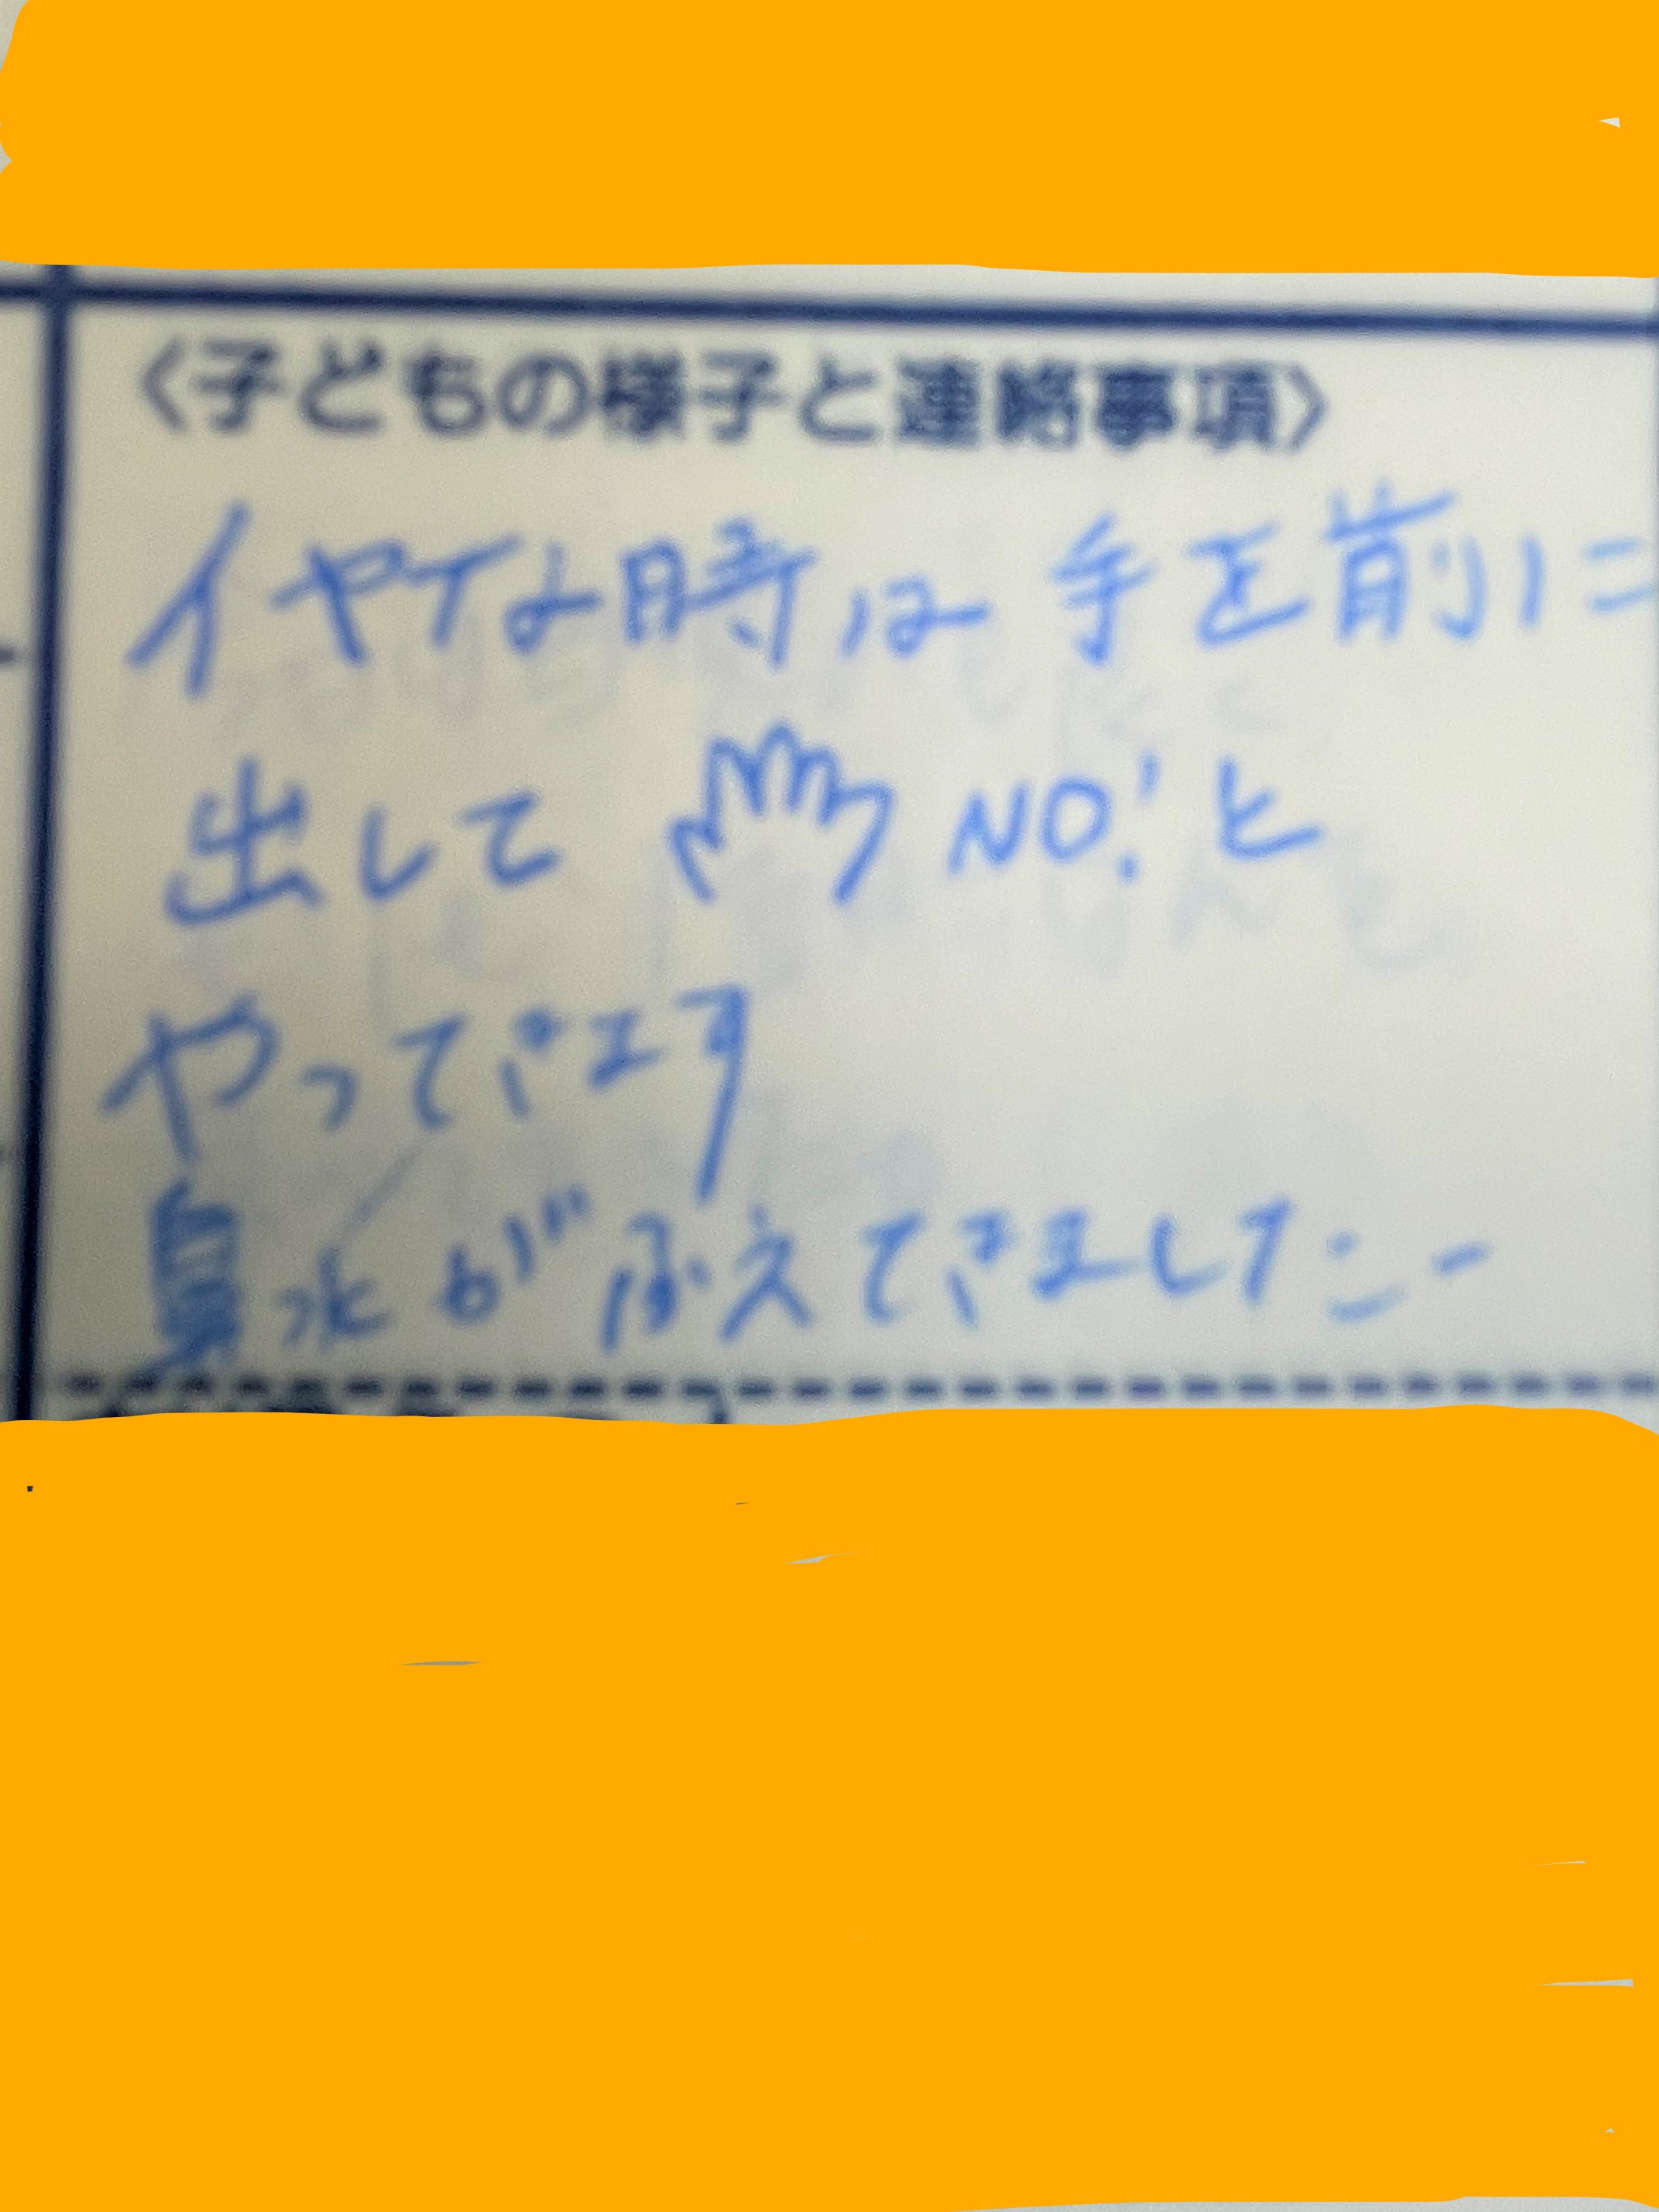 〈子どもの様子と連絡事項〉
イヤイな時は手を前に
出して NO!と
やってきます
鼻水がふえてきましたー